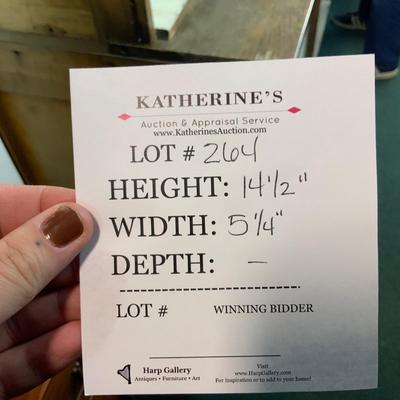 KATHERINE'S
Auction & Appraisal Service
www.KatherinesAuction.com
LOT # 264
HEIGHT: 14 1/2"
WIDTH: 5 1/4"
DEPTH: –
LOT # WINNING BIDDER
Harp Gallery
Antiques • Furniture • Art
Visit
www.HarpGallery.com
For inspiration or to add to your home!